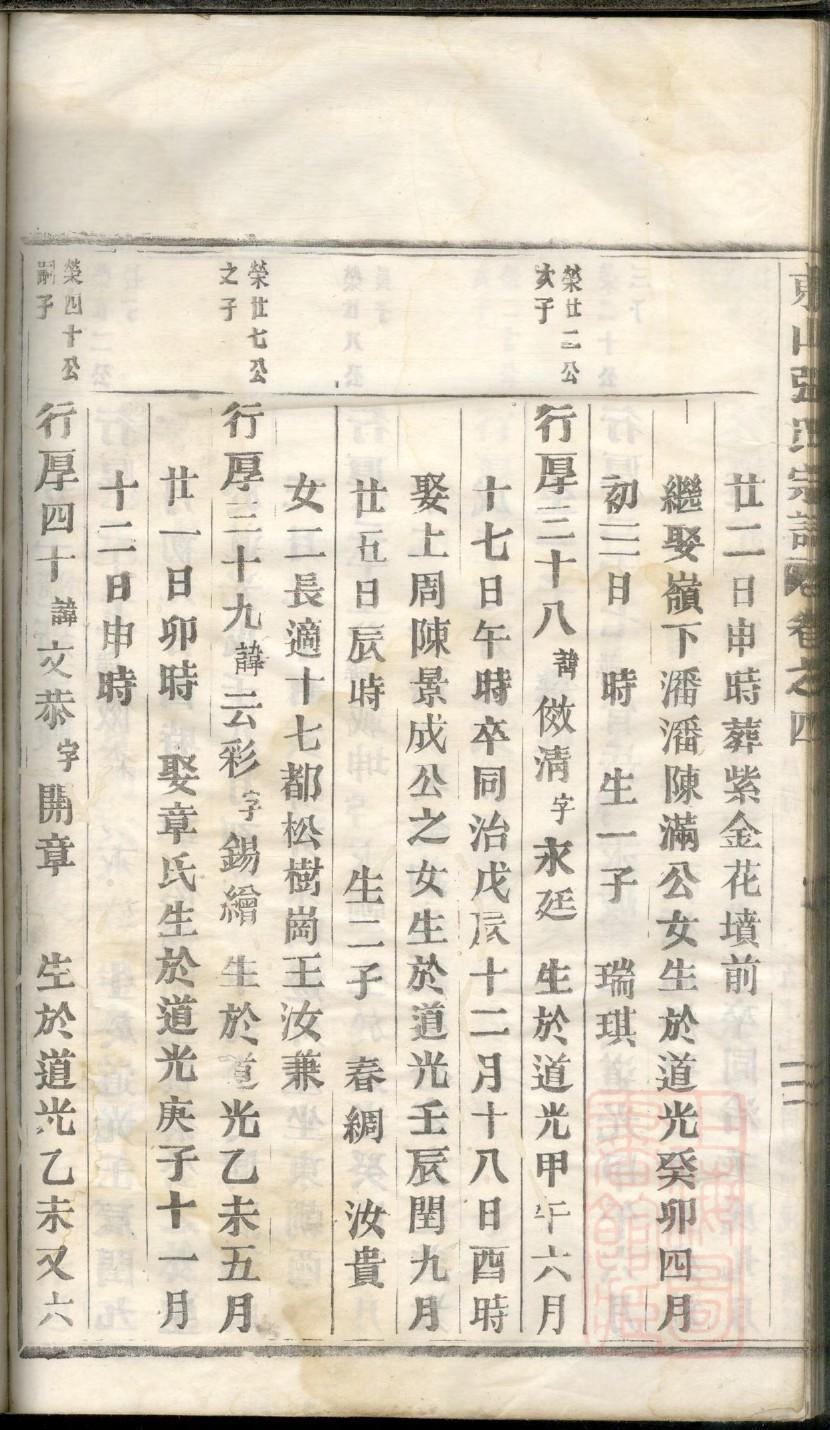 東山張氏宗譜 卷之四
廿二日申時葬紫金花墳前
繼娶嶺下潘潘陳滿公女生於道光癸卯四月
初三日 時 生一子 瑞琪
榮廿二公
次子
行厚三十八 諱 傚清 字 永廷 生於道光甲午六月
十七日午時卒同治戊辰十二月十八日酉時
娶上周陳景成公之女生於道光壬辰閏九月
廿五日辰時 生二子 春綢 汝貴
女二長適十七都松樹崗王汝兼
榮廿七公
之子
行厚三十九 諱 云彩 字 錫繪 生於道光乙未五月
廿一日卯時 娶章氏生於道光庚子十一月
十二日申時
榮四十公
嗣子
行厚四十 諱 文恭 字 開章 生於道光乙未又六